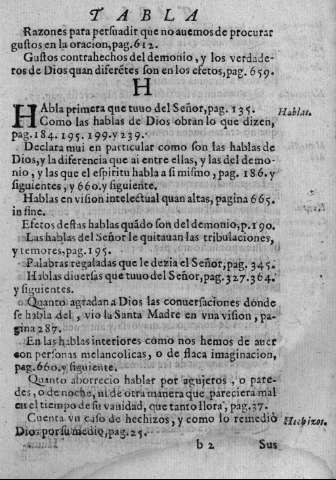 TABLA
Razones para persuadir que no auemos de procurar
gustos en la oracion, pag. 612.
Gustos contrahechos del demonio, y los verdade-
ros de Dios quan diferẽtes son en los efetos, pag. 659.
H
HAbla primera que tuuo del Señor, pag. 135.
Hablas.
Como las hablas de Dios obran lo que dizen,
pag. 184. 195. 199. y 239.
Declara mui en particular como son las hablas de
Dios, y la diferencia que ai entre ellas, y las del demo-
nio, y las que el espiritu habla a si mismo, pag. 186. y
siguientes, y 660. y siguiente.
Hablas en vision intelectual quan altas, pagina 665.
in fine.
Efetos destas hablas quãdo son del demonio, p. 190.
Las hablas del Señor le quitauan las tribulaciones,
y temores, pag. 195.
Palabras regaladas que le dezia el Señor, pag. 345.
Hablas diuersas que tuuo del Señor, pag. 327. 364.
y siguientes.
Quanto agradan a Dios las conuersaciones donde
se habla del, vio la Santa Madre en vna vision, pa-
gina 287.
En las hablas interiores como nos hemos de auer
con personas melancolicas, o de flaca imaginacion,
pag. 660. y siguiente.
Quanto aborrecio hablar por agujeros, o pare-
des, o de noche, ni de otra manera que pareciera mal
en el tiempo de su vanidad, que tanto llora, pag. 37.
Cuenta vn caso de hechizos, y como lo remediò
Hechizos.
Dios por su medio, pag. 25.
b 2 Sus